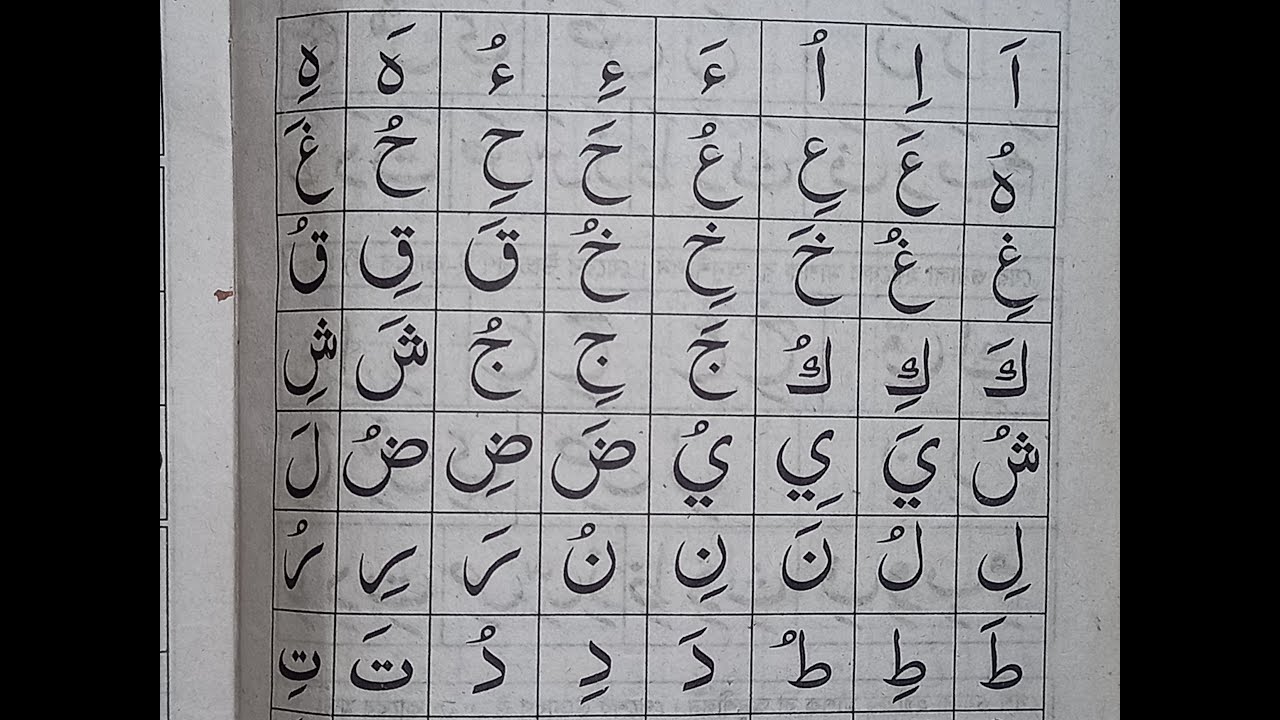 اَ اِ اُ ءَ ءِ ءُ هَ هِ
هُ عَ عِ عُ حَ حِ حُ غَ
غِ غُ خَ خِ خُ قَ قِ قُ
كَ كِ كُ جَ جِ جُ شَ شِ
شُ يَ يِ يُ ضَ ضِ ضُ لَ
لِ لُ نَ نِ نُ رَ رِ رُ
طَ طِ طُ دَ دِ دُ تَ تِ